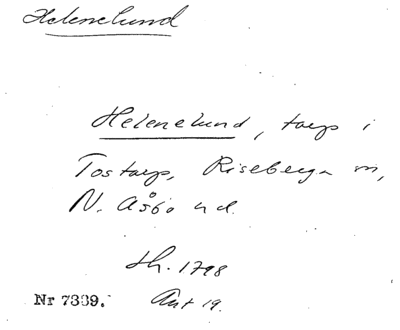 Helenelund
Helenelund, torp i
Tostarp, Riseberga sn,
N. Åsbo hd.
Jb. 1798
Nr 7339. Ant 19.